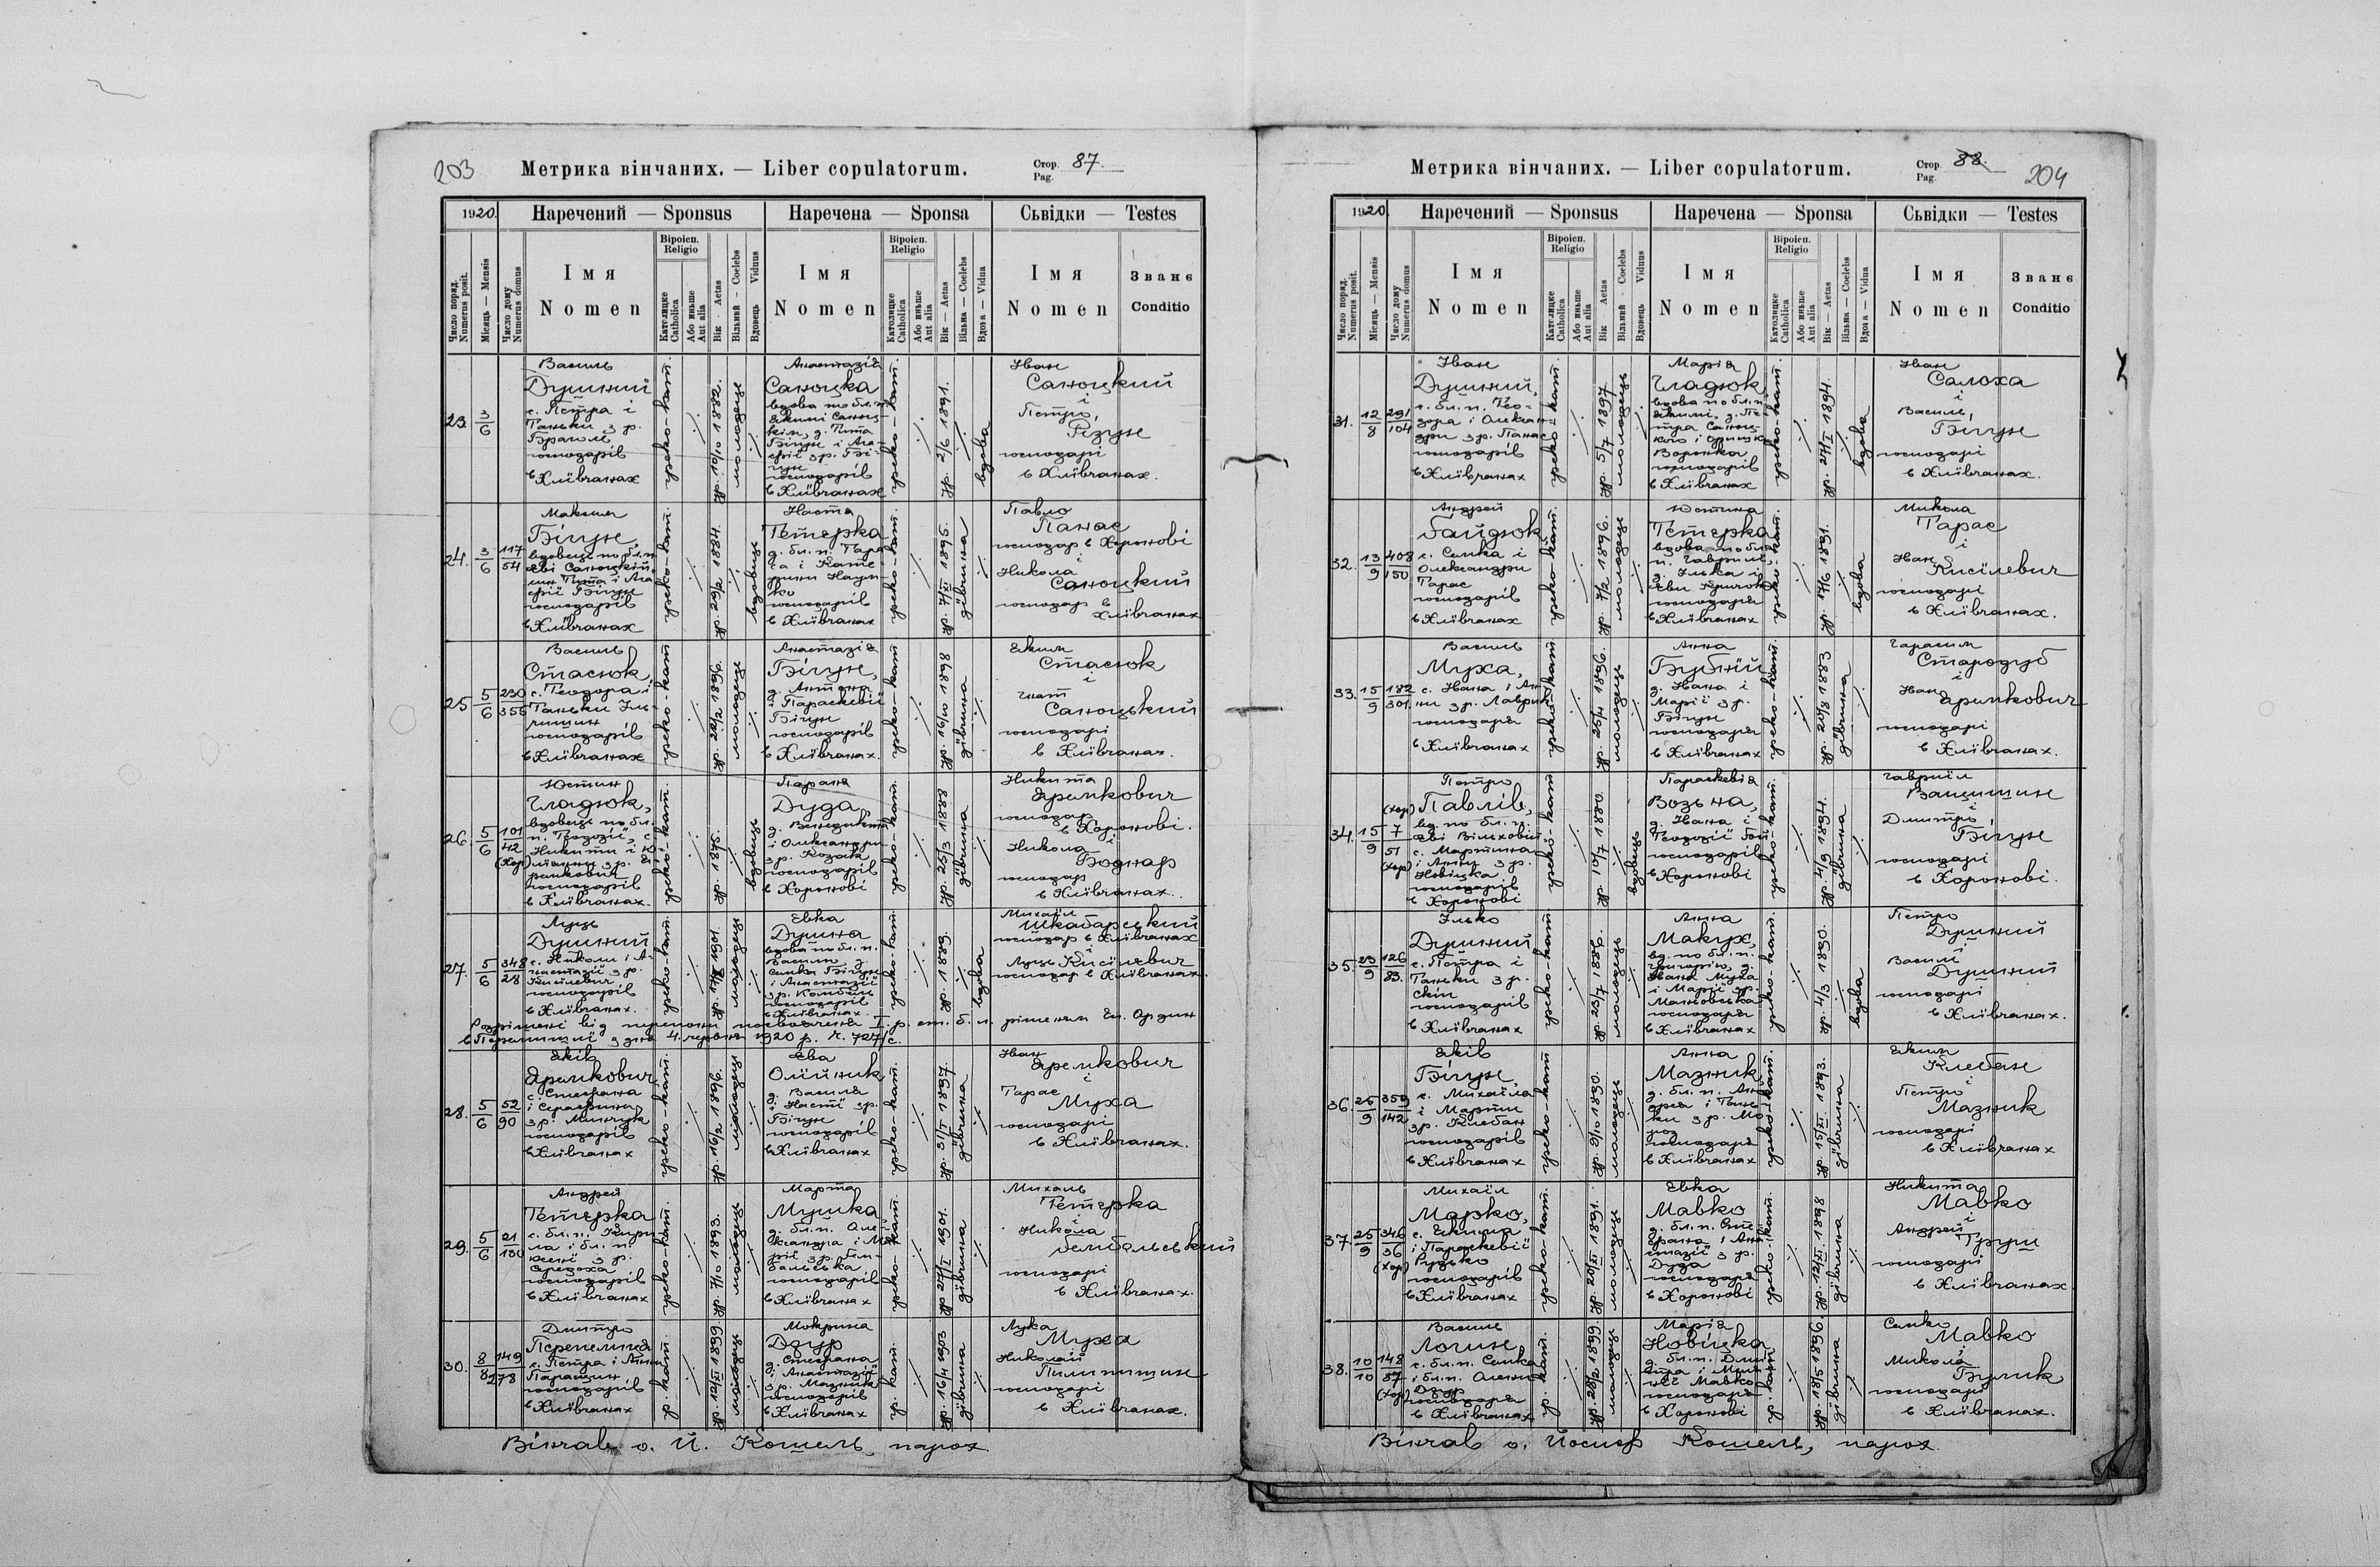 203
Метрика вінчаних. — Liber copulatorum.
Стор. 87.
Pag.
1920.
Наречений — Sponsus
Наречена — Sponsa
Сьвідки — Testes
Число поряд.
Numerus posit.
Місяць — Mensis
Число дому
Numerus domus
Імя
Nomen
Віроісп.
Religio
Католицке
Catholica
Або иньше
Aut alia
Вік - Aetas
Вільний - Coelebs
Вдовець Viduus
Імя
Nomen
Віроісп.
Religio
Католицке
Catholica
Або иньше
Aut alia
Вік — Aetas
Вільна — Coelebs
Вдова — Vidua
Імя
Nomen
Званє
Conditio
23.
3/6
Василь
Душний
с. Петра і
Таньки з р.
господарів
в Хлївчанах
греко-кат.
ур. 10/10 1882.
молодець
Анастазія
Саноцка
вдова по бл. п.
господарів
в Хлївчанах
греко-кат.
ур. 2/6 1891.
вдова
Іван
Саноцкий
і
Петро,
господарі
в Хлївчанах.
24.
3/6
117/54
Максим
Бігун
вдовець по бл. п.
Еві Саноцкій
господарів
в Хлївчанах
греко-кат.
ур. 29/2 1884.
вдовець
Наста
Тетерка
д. бл. п. Тара-
са і Кате-
рини Наум-
ко
господарів
в Хлївчанах
греко-кат.
дївчина
Павло
Панас
господар в Хоронові
і
Никола
Саноцкий
господар в
Хлївчанах
25
5/6
230/355
Василь
Стасюк,
с. Теодора і
Таньки
господарів
в Хлївчанах
греко-кат
молодець
Анастазія
Бігун,
д. Антона
і Параскевії
Бігун
господарів
в Хлївчанах.
греко-кат
ур. 16/10 1898
дївчина
Яким
Стасюк
і
Гнат
Саноцький
господарі
в Хлївчанах.
26.
5/6
101/42
(Хор)
Юстин
Гладюк,
вдовець по бл.
п. Теодозії, с.
Никити і Ю-
господарів
в Хлївчанах.
греко-кат.
ур. 1875.
вдовець
Параня
Дуда,
д. Венедикта
і Олександри
з р. Козак
господарів
в Хоронові
греко-кат.
ур. 25/3 1888
дївчина
Никита
Яремкович
господар
в Хоронові.
і
Никола
Боднар
господар
в Хлївчанах.
27.
5/6
348/28
Луць
Душний
с. Николи і А-
настазії з р.
Кисілевич
господарів
в Хлївчанах.
греко-кат.
молодець
Евка
Душна
вдова по бл. п.
Васили, д.
Семка Бігун
і Анастазії
господарів
в Хлївчанах.
греко-кат.
ур. 1889.
вдова
Михайл
Шкабарський
господар в Хлївчанах
і
Луць Кисілевич
господар в Хлївчанах.
в Перемишлї з дня 4. червня 1920 р. Ч. 727/с.
28.
5/6
52/90
Яків
Яремкович
с. Стефана
господарів
в Хлївчанах
греко-кат.
ур. 16/2 1896.
молодець
Ева
Олїйник,
д. Василя
і Насті з р.
Бігун
господарів
в Хлївчанах
греко-кат.
дївчина
Іван
Яремкович
і
Тарас
Муха
господарі
в Хлївчанах.
29.
5/6
21/130
Андрей
Тетерка
господарів
в Хлївчанах
греко-кат.
ур. 7/10 1893.
молодець
Марта
Мушка
господарів
в Хлївчанах
греко-кат.
дївчина
Михаль
Тетерка
і
Никола
господарі
в Хлївчанах.
30.
8/8
149/278
Дмитро
Перепелиця
с. Петра і Анни
Паращин
господарів
в Хлївчанах
гр. кат.
молодець
Мокрина
Дзур
д. Стефана
і Анастазії
з р. Мазник
господарів
в Хлївчанах
гр. кат.
ур. 16/4 1903
дївчина
Лука
Муха
і
Николай
Пилипишин
господарі
в Хлївчанах.
Вінчав о. Й. Кошель, парох.
Метрика вінчаних. — Liber copulatorum.
Стор. 88.
Pag.
204
1920.
Наречений — Sponsus
Наречена — Sponsa
Сьвідки — Testes
Число поряд.
Numerus posit.
Місяць — Mensis
Число дому
Numerus domus
Імя
Nomen
Віроісп.
Religio
Католицке
Catholica
Або иньше
Aut alia
Вік - Aetas
Вільний - Coelebs
Вдовець Viduus
Імя
Nomen
Віроісп.
Religio
Католицке
Catholica
Або иньше
Aut alia
Вік — Aetas
Вільна — Coelebs
Вдова — Vidua
Імя
Nomen
Званє
Conditio
31.
12/8
291/104
Іван
Душний,
с. бл. п. Тео-
дора і Олексан-
дри з р. Панас
господарів
в Хлївчанах
греко-кат.
ур. 5/7 1897
молодець
Марія
Гладюк
вдова по бл. п.
Якимі, д. Пе-
тра Саноц-
кого і
Воронка
господарів
в Хлївчанах
греко-кат.
вдова
Іван
Салоха
і
Василь,
Бігун
господарі
в Хлївчанах.
32.
13/9
408/150
Андрей
Гайдюк
с. Семка і
Олександри
Тарас
господарів
в Хлївчанах
греко-кат.
ур. 7/2 1896.
молодець
Юстина
Тетерка
вдова по бл.
п. Гаврилї
д. Ілька і
господаря
в Хлївчанах
греко-кат.
ур. 17/6 1891.
вдова
Микола
Тарас
і
Иван
Кисілевич
господарі
в Хлївчанах.
33.
15/9
182/301
Василь
Муха,
с. Ивана і Ан-
ни з р. Лаврик
господаря
в Хлївчанах
греко-кат
ур. 25/4 1896.
молодець
Анна
Бубнїй
д. Ивана і
Марії з р.
Бігун
господаря
в Хлївчанах
греко-кат.
ур. 20/8 1883
дївчина
Гарасим
Стародуб
і
Иван
Яремкович
господарі
в Хлївчанах.
34.
15/9
(хор) 7/51 (хор)
Петро
Павлів,
вд. по бл. п.
с. Мартина
і Анни з р.
Новіцка
господарів
в Хоронові
греко-кат
ур. 10/7 1880.
вдовець
Параскевія
Возьна,
д. Ивана і
Теодозії
господарів
в Хоронові
греко-кат.
ур. 4/9 1894.
дївчина
Гавриїл
Ващишин
і
Дмитро
Бігун
господарі
в Хоронові.
35.
23/9
126/83.
Ілько
Душний
с. Петра і
Таньки з р.
Скіп
господарів
в Хлївчанах
греко-кат.
ур. 23/7 1886.
молодець
Анна
Макух,
вд. по бл. п.
Григорію, д.
Ивана Муха
і Марії з р.
господаря
в Хлївчанах
греко-кат.
ур. 4/3 1890.
вдова
Петро
Душний
і
Василь
Душний
господарі
в Хлївчанах.
36.
25/9
359/142
Яків
Бігун,
с. Михайла
і Марти
з р. Клебан
господарів
в Хлївчанах
греко-кат
ур. 9/10 1890.
молодець
Анна
Мазник
д. бл. п. Ан-
дрея і Тань-
ки з р. Мо-
роз
господаря
в Хлївчанах
греко-кат.
дївчина
Яким
Клебан
і
Петро
Мазник
господарі
в Хлївчанах
37.
25/9
346/36
(хор)
Михаїл
Марко,
с. Якима
і Параскевії
Рудько
господарів
в Хлївчанах
греко-кат.
молодець
Евка
Мавко
д. бл. п. Сте-
фана і Ана-
стазії з р.
Дуда
господаря
в Хоронові
греко-кат.
дївчина
Никита
Мавко
і
Андрей
господарі
в Хлївчанах
38.
10/10
148/57
(хор)
Василь
Логин,
с. бл. п. Семка
і бл. п. Олени
Дзур
господаря
в Хлївчанах
гр. кат.
ур. 28/2 1899.
молодець
Марія
Новіцка
д. бл. п. Дми-
тра і Мела-
нії Мавко
господаря
в Хоронові
гр. кат
ур. 18/5 1896.
дївчина
Семко
Мавко
і
Микола
Гулик
господарі
в Хлївчанах.
Вінчав о. Йосиф Кошель, парох.